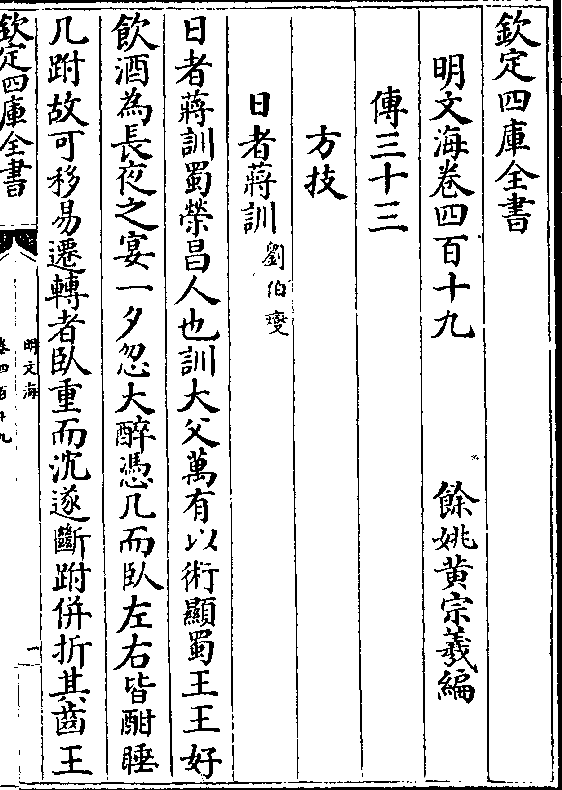 欽定四庫全書
明文海卷四百十九
餘姚黃宗羲編
傳三十三
方技
日者蔣訓
劉伯燮
日者蔣訓蜀榮昌人也訓大父萬有以術顯蜀王王好
飲酒為長夜之宴一夕忽大醉憑几而臥左右皆酣睡
几跗故可移易遷轉者臥重而沉遂斷跗併折其齒王
欽定四庫全書
明文海
卷四百十九
一